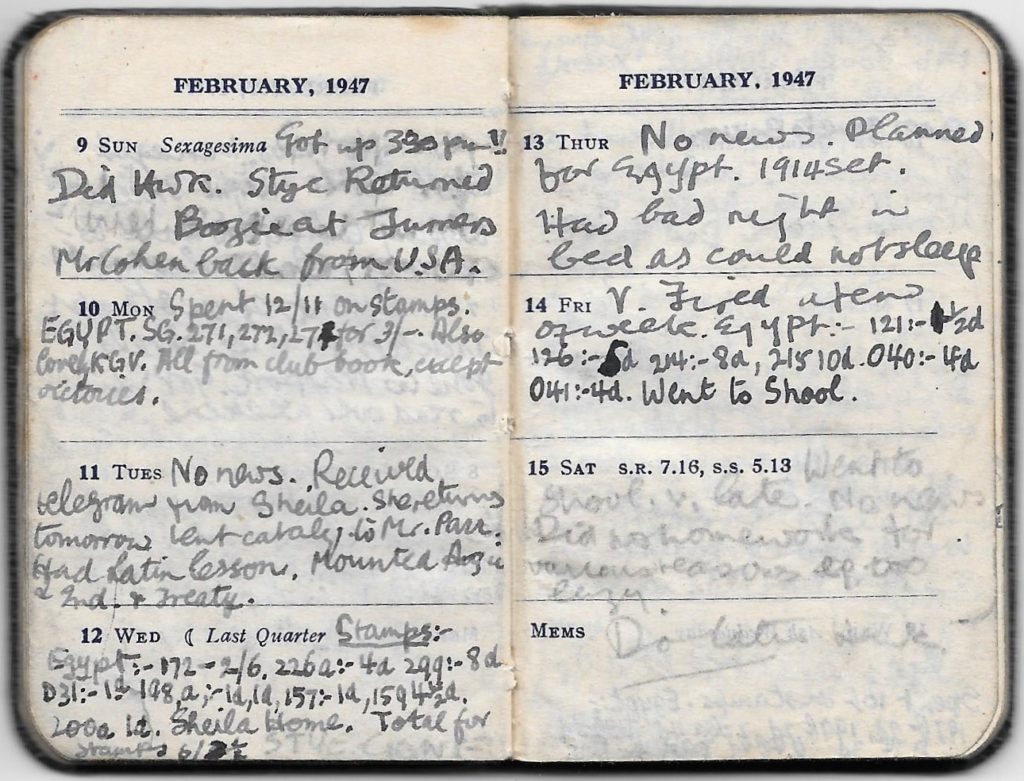 FEBRUARY, 1947
9 SUN Sexagesima Got up 330 pm!!
Did HWK. Stye Returned
at Turners
Mr Cohen back from U.S.A.
10 MON Spent 12/11 on stamps.
EGYPT. SG. 271, 272, 274 for 3/-. Also
lovely KGV. All from club book, except
victories.
11 TUES No news. Received
telegram from Sheila. She returns
tomorrow lent catalg. to Mr. Parr.
Had Latin lesson. Mounted
& Ind. & Treaty.
12 WED ☾ Last Quarter Stamps:-
Egypt:- 172 - 2/6. 226a:- 4d 299:- 8d
D31:- 1d 198,a,:- 1d,1d, 157:- 1d, 159 4½d.
200a 1d. Sheila Home. Total for
Stamps
FEBRUARY, 1947
13 THUR No news. Planned
for Egypt. 1914 set.
Had bad night in
bed as could not sleep
14 FRI V. Tired at end
of week. Egypt:- 121:- 1½d
126:- 6d 214:- 8d, 215 10d. 040:- 4d
041:- 4d. Went to Shool.
15 SAT S.R. 7.16, S.S. 5.13 Went to
Shool. v. late. No news
Did no homeworks for
various reasons eg. too
lazy.
MEMS Do